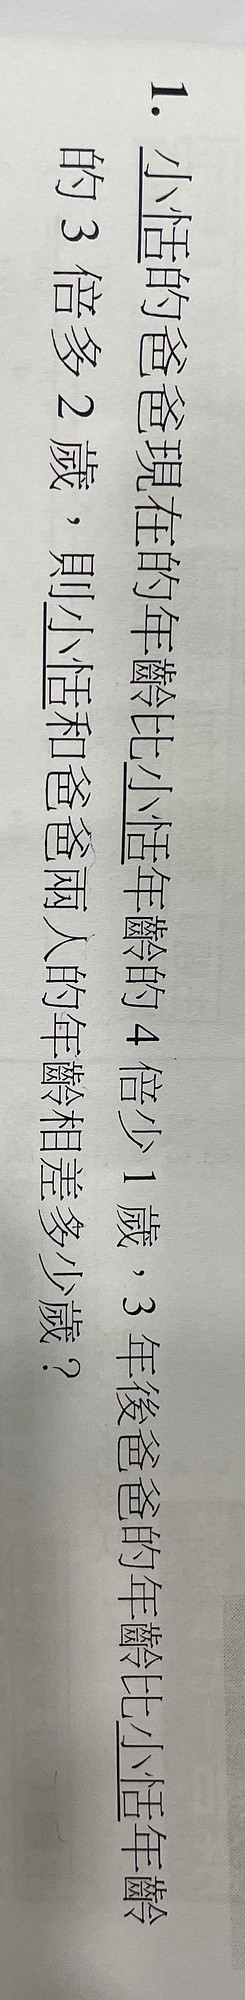 1. 小恬的爸爸現在的年齡比小恬年齡的 4 倍少 1 歲，3 年後爸爸的年齡比小恬年齡
的 3 倍多 2 歲，則小恬和爸爸兩人的年齡相差多少歲？